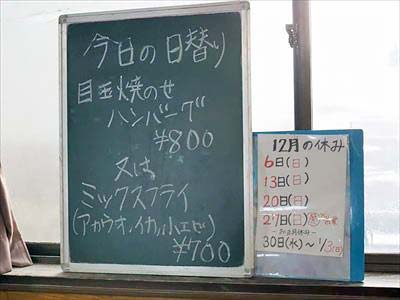 今日の日替り
目玉焼のせ
ハンバーグ
¥800
又は
ミックスフライ
(アカウオ、イカ、小エビ)
¥700
12月の休み
6日(日)
13日(日)
20日(日)
27日(日)
30日(水)〜1/3(日)